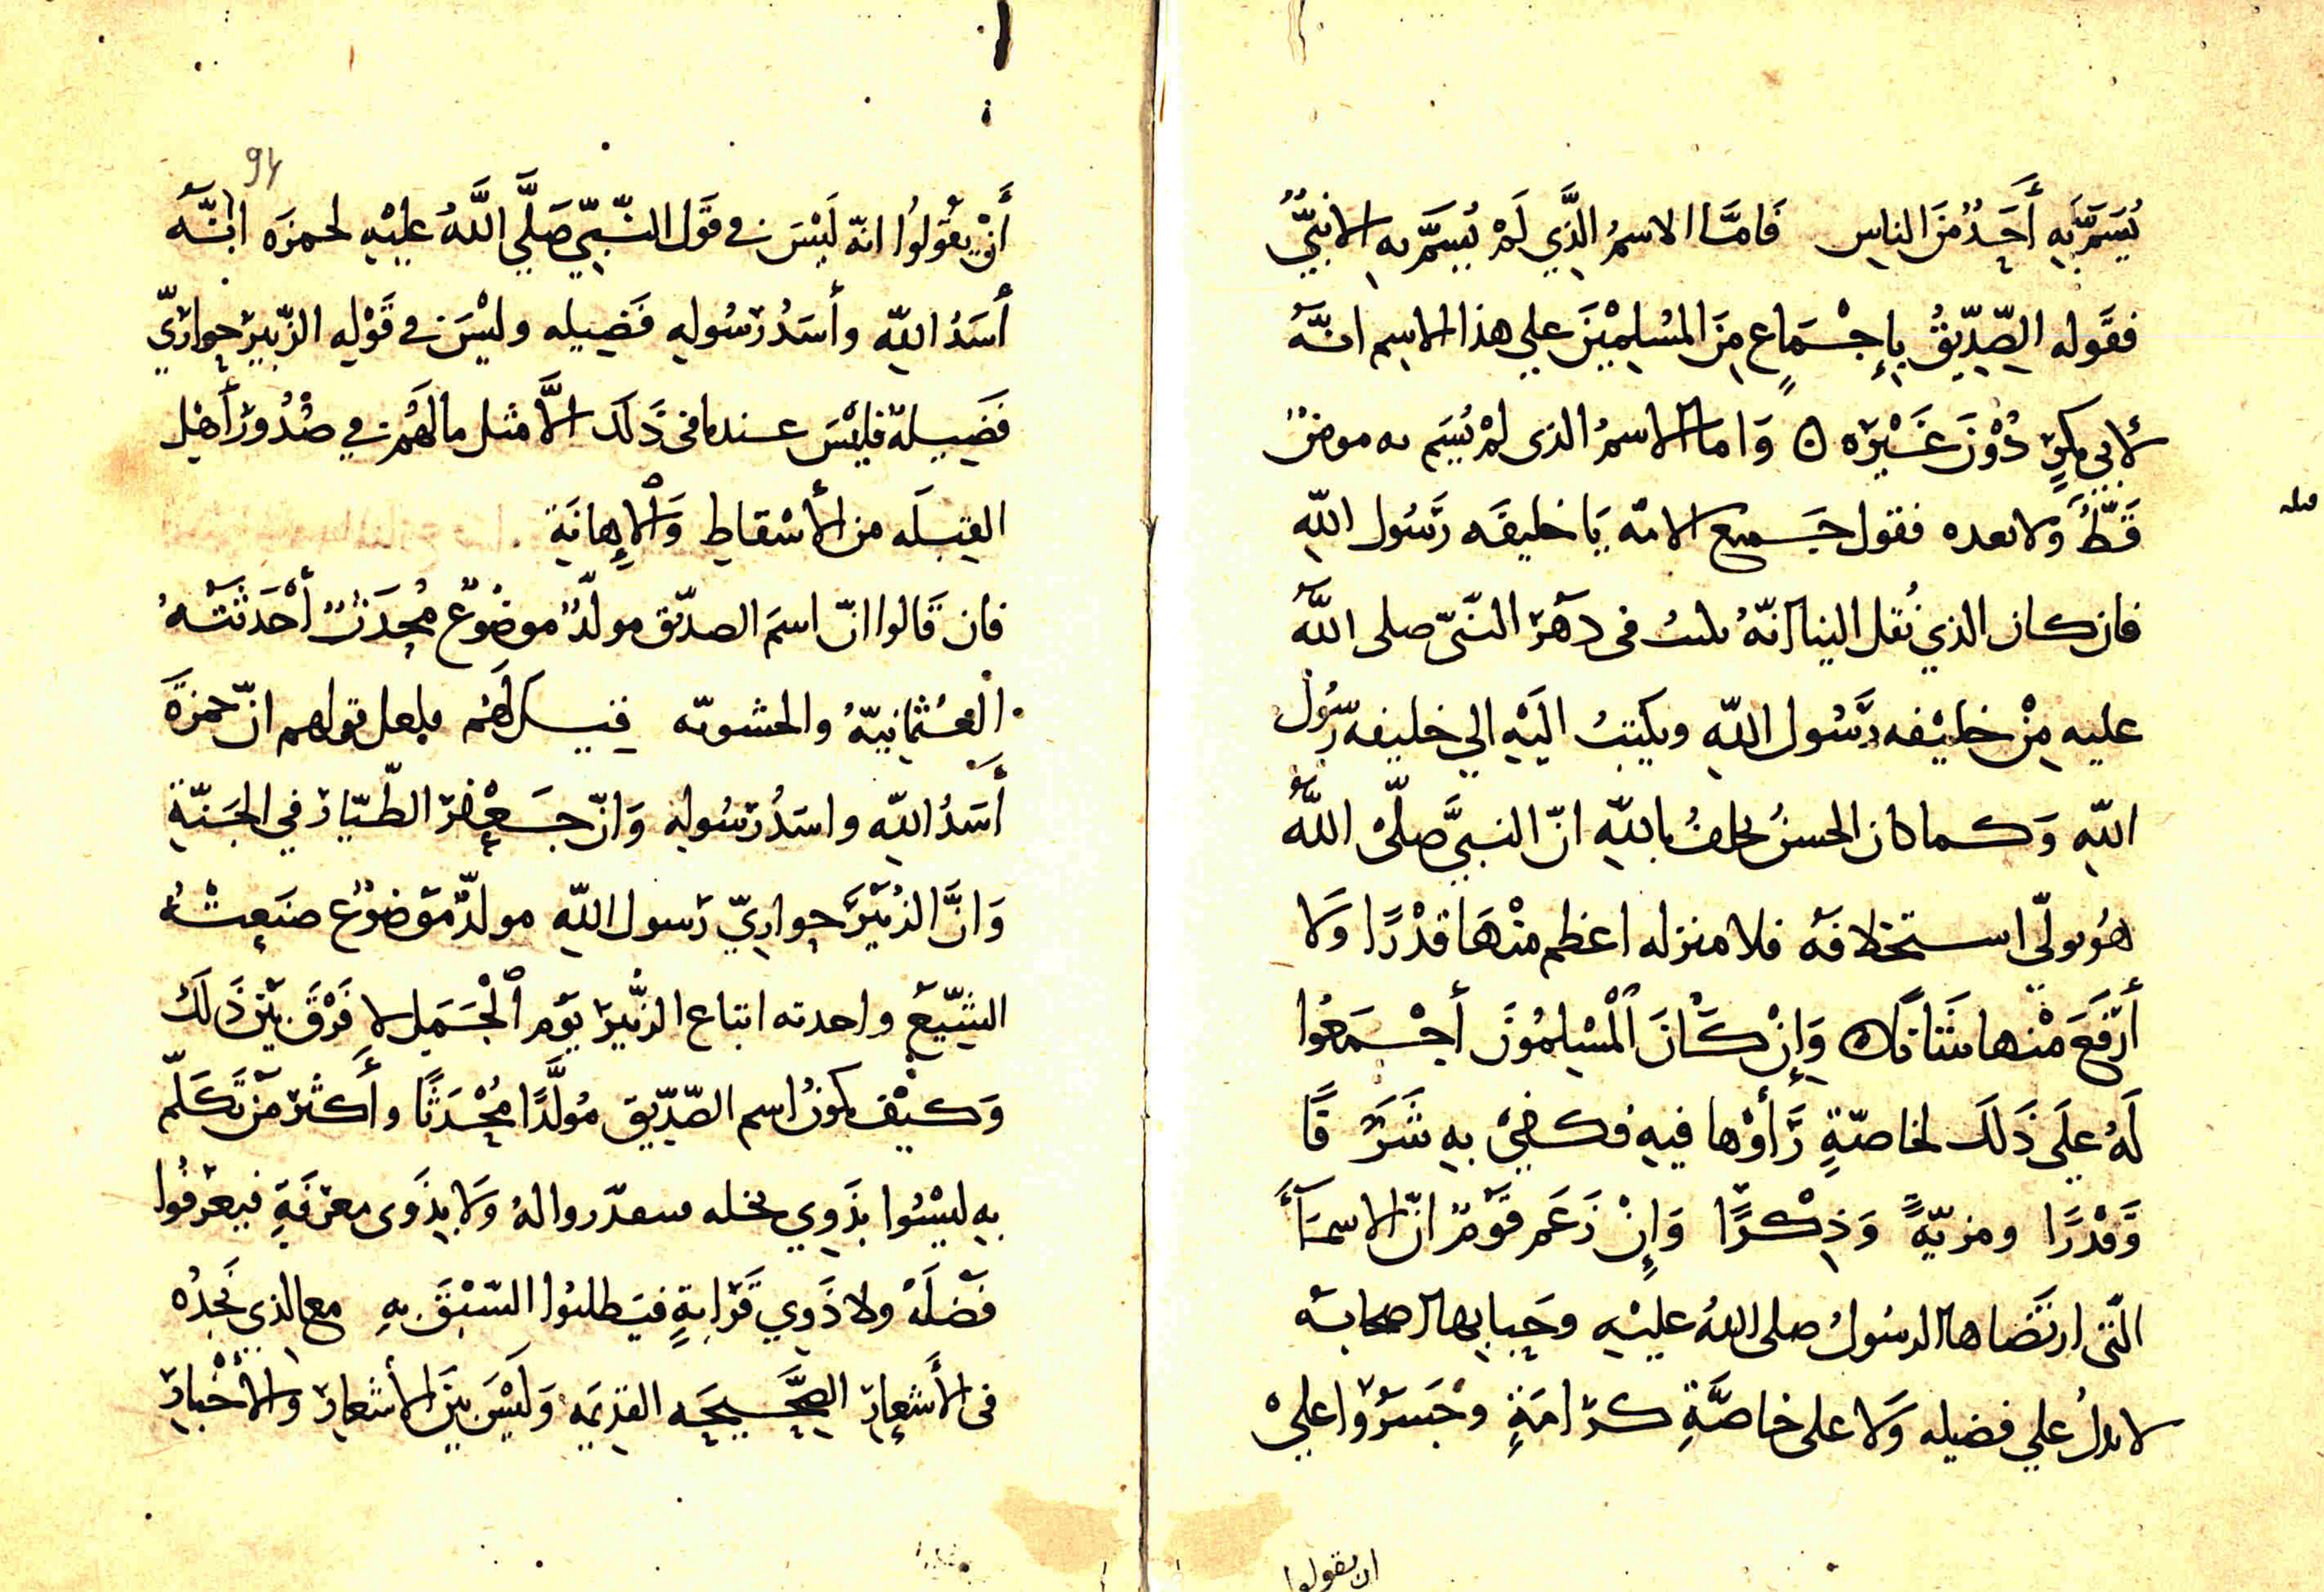 يُسَمَّ بِهِ أَحَدٌ مِنَ الناسِ فَامَّا الاسمُ الَّذِي لَمْ يُسَمَّ به الا نبيٌّ
فقَوله الصِّدِّيقُ بِإِجْمَاعٍ مِنَ المُسْلِمِيْنَ علي هذا الاسِم انَّهُ
لابي بكرٍ دُوْنَ غَيْرَه ن وَاما الاسمُ الذى لمْ يُسَم به مومنٌ
قَطُّ وَلا بعده فقول جَميع الامّه يَا خليفَه رَسُول اللهِ
قبله
فان كان الذي نُقل الينا انّهُ يكتبُ في دَهَر النَّبىّ صلى اللهُ
عليهِ مِنْ خليْفه رَسُول اللهِ ويكتبُ الَيْهِ الي خليفه رسُول
اللهِ وَكما كان الحسنُ يحلفُ باللهِ انّ النبيَّ صلّى اللهُ
هُو ولّي استخلافَه فلا منزله اعظم منْهَا قدْرًا وَلا
أَرْفَعَ مْنها شَانًا ن وَإِنْ كَانَ ٱلْمُسْلِمُوْنَ أجْمَعُوا
لَهُ علَى ذَلَك لخاصّةٍ رَأَوْها فيهِ فكفَى بهِ شَرَفًا
وَقدْرًا ومزيّةً وَذِكْرًا وَإِنْ زَعَم قَوْمٌ انّ الاسمَآءَ
الّتى ارتَضَاها الرسُولُ صلى اللهُ عليْهِ وحَبَا بها اصحابَه
لا يدلُ علي فضيله وَلا على خاصَّةِ كرَامَةٍ وجَسَرُوا عليْ
ان يقولوا
94
أَنْ يقُولُوا انهّ لَيْسَ في قَول النَّبِيّ صَلَّي اللَّهُ عليْهِ لحمزَه انّهُ
أسَدُ اللهِ وأسَدُ رَسُولهِ فَضِيله وليْسَ في قَوْلهِ الزّبيرَ حِواريّ
فَضِيلة فليْسَ عندنا في ذَلَك الَّا مثل ما لهُمْ في صُدُورِ أهْل
القِبلَه من الأَسْقاطِ وَٱلإِهانَةِ
فان قَالوا انّ اسمَ الصدّيق مولّدٌ موضُوعٌ مُحدَثٌ أحْدَثَتْهُ
العُثمانِيّهُ والحشويّه قيل لَهُم فلعل قولهم انّ حمزَةَ
أَسَدُ اللهِ واسَدُ رَسُولهِ وَانّ جَعْفَر الطّيّارُ في الجَنّةِ
وَانَّ الزُبَيْرَ حِواريّ رَسول اللهِ مولّدٌ مَوضُوعٌ صنَعتْهُ
الشِّيَعُ واحدثه اتباع الزُّبيرِ يَوْمَ ٱلْجَمَلِ لا فَرْقَ بيْنَ ذَلَكَ
وَكيْفَ يكونُ اسم الصِّدِّيقِ مُولَّدًا مُحْدَثًا وأَكثَر مَنْ تَكَلّم
بهِ ليْسُوا بذَوِي نحله فيتقدّروا لهُ وَلا بذَوِى مَعْرفَةٍ فيعْرفُوا
فَضْلَهُ ولا ذَوِي قَرَابةٍ فيَطلبُوا السَّبْقَ بهِ مع الذي نَجدُه
في الأَشْعارِ الصَّحيحَه القديَمه وَلَيْسَ بيَن الأشعارِ والأَخْبارِ